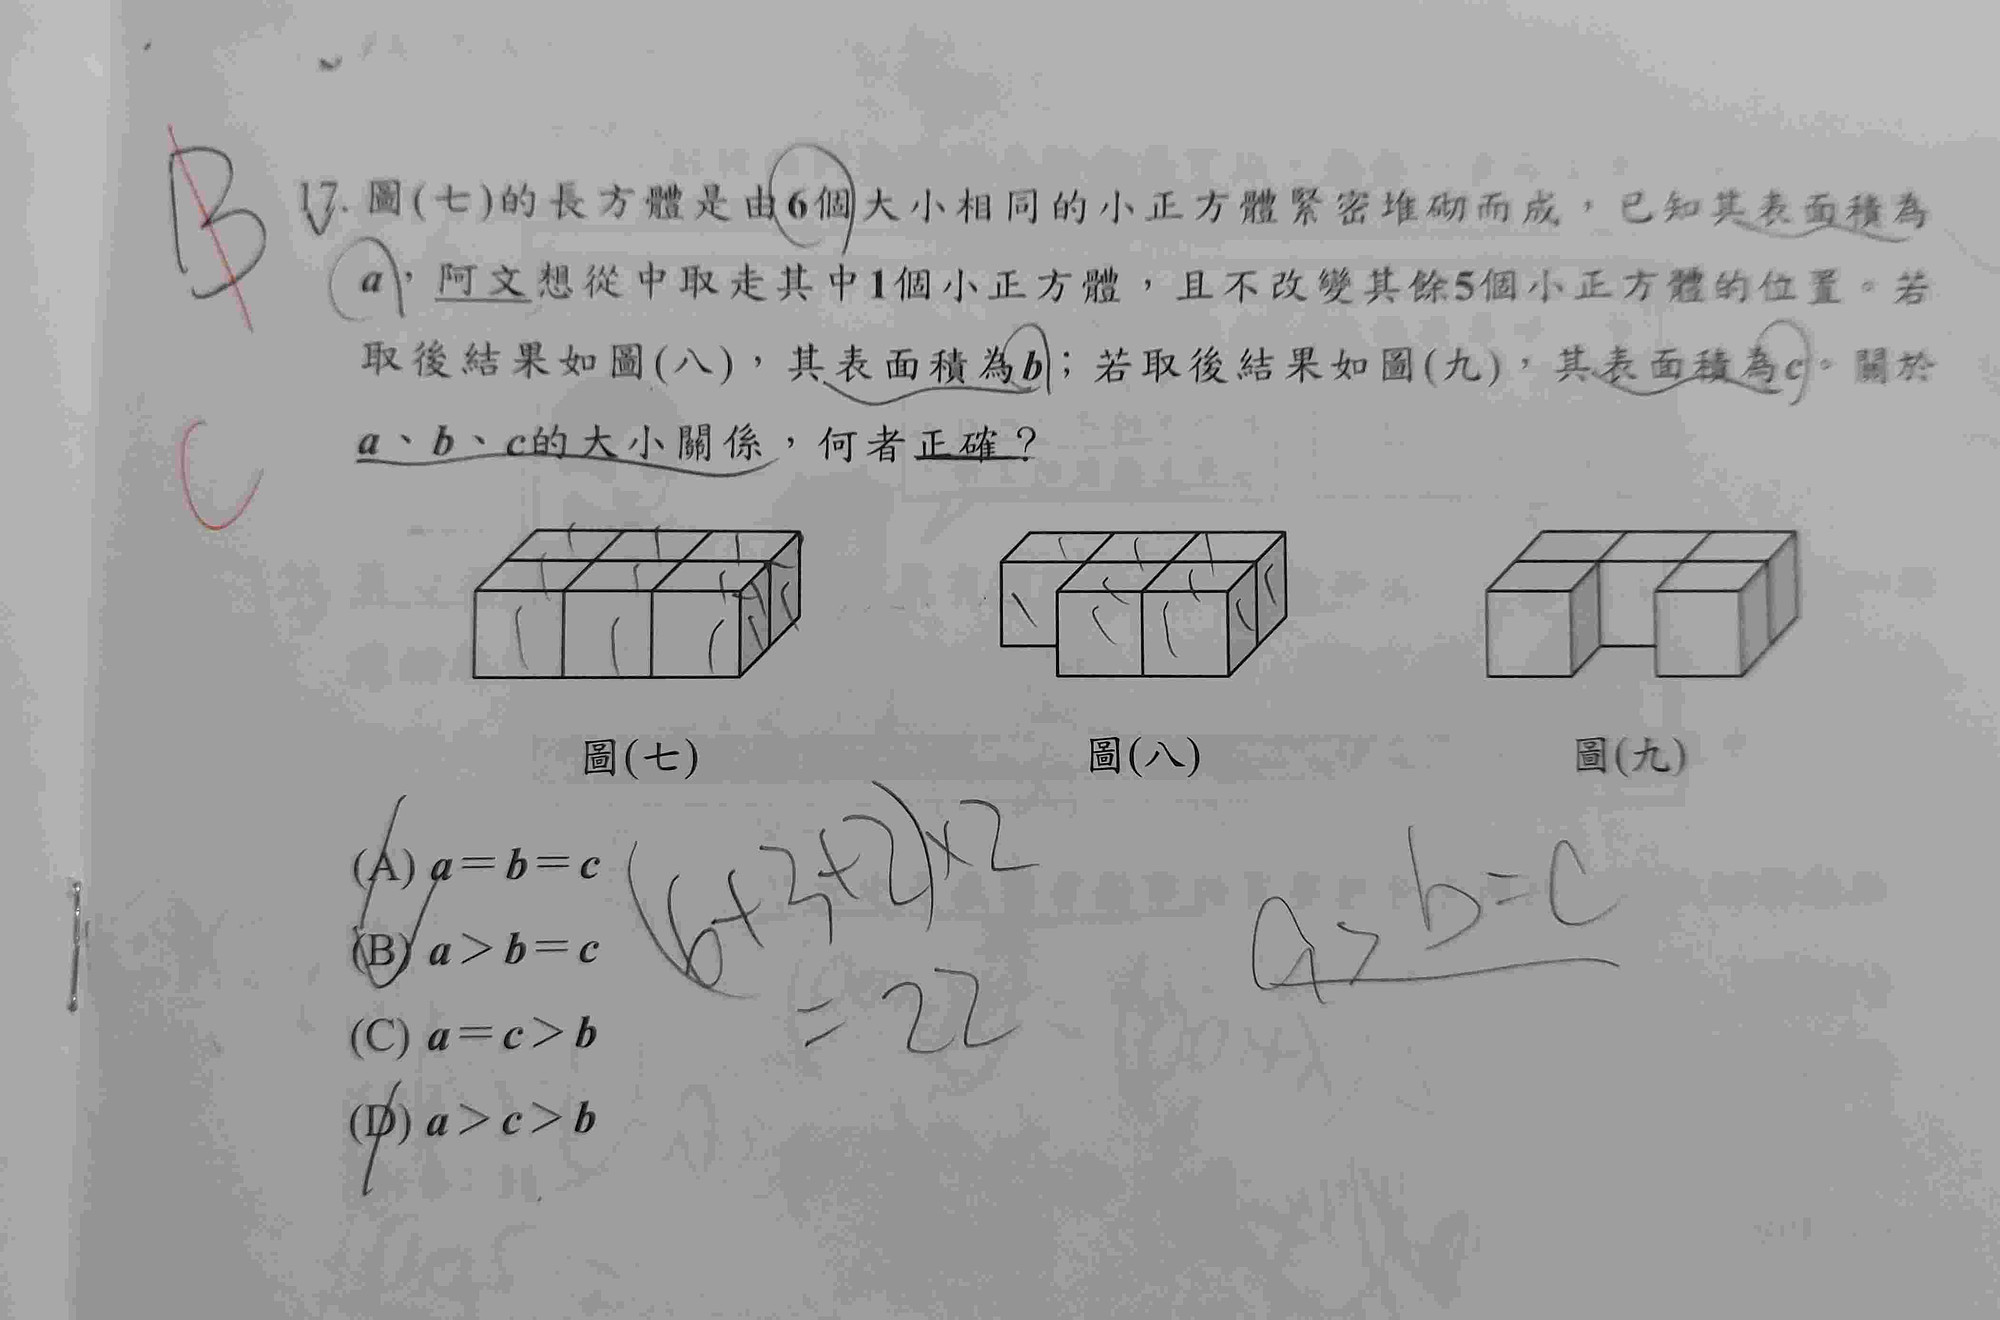 B
17. 圖(七)的長方體是由6個大小相同的小正方體緊密堆砌而成，已知其表面積為
a，阿文想從中取走其中1個小正方體，且不改變其餘5個小正方體的位置。若
取後結果如圖(八)，其表面積為b；若取後結果如圖(九)，其表面積為c。關於
C
a、b、c的大小關係，何者正確？
圖(七) 圖(八) 圖(九)
(A) a=b=c
(B) a>b=c
(C) a=c>b
(D) a>c>b
(6+3+2)×2
=22
a>b=c